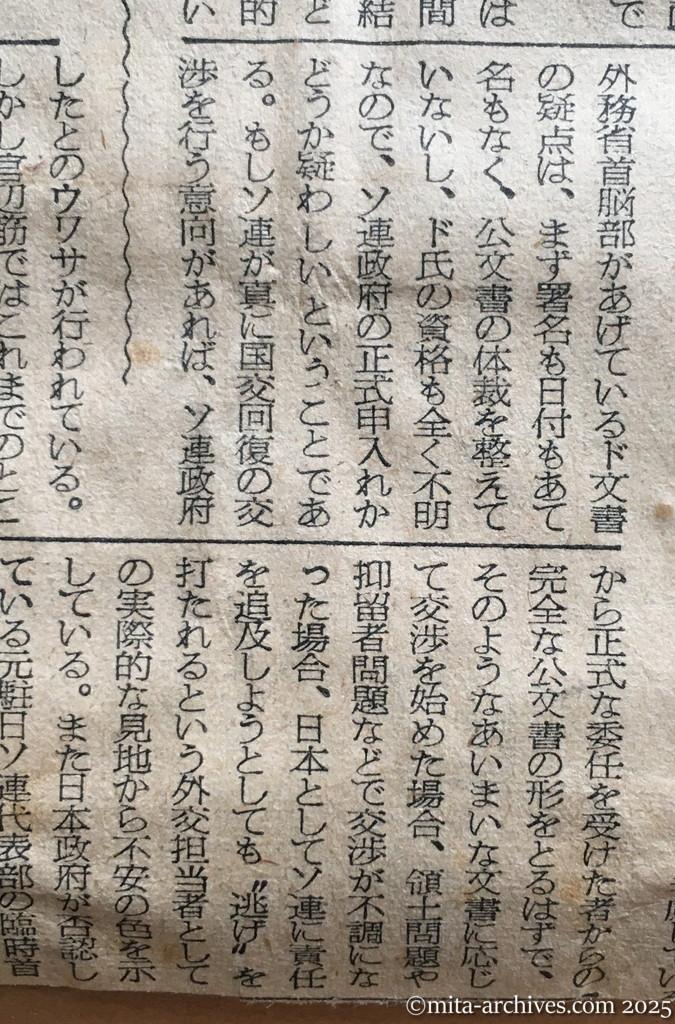 で
は
間
結
ど
的
い
外務省首脳部があげているド文書
の疑点は、まず署名も日付もあて
名もなく、公文書の体裁を整えて
いないし、ド氏の資格も全く不明
なので、ソ連政府の正式申入れか
どうか疑わしいということであ
る。もしソ連が真に国交回復の交
渉を行う意向があれば、ソ連政府
したとのウワサが行われている。
しかし官辺筋ではこれまでのとこ
から正式な委任を受けた者からの
完全な公文書の形をとるはずで、
そのようなあいまいな文書に応じ
て交渉を始めた場合、領土問題や
抑留者問題などで交渉が不調にな
った場合、日本としてソ連に責任
を追及しようとしても〝逃げ〟を
打たれるという外交担当者として
の実際的な見地から不安の色を示
している。また日本政府が否認し
ている元駐日ソ連代表部の臨時首
©mita-archives.com 2025